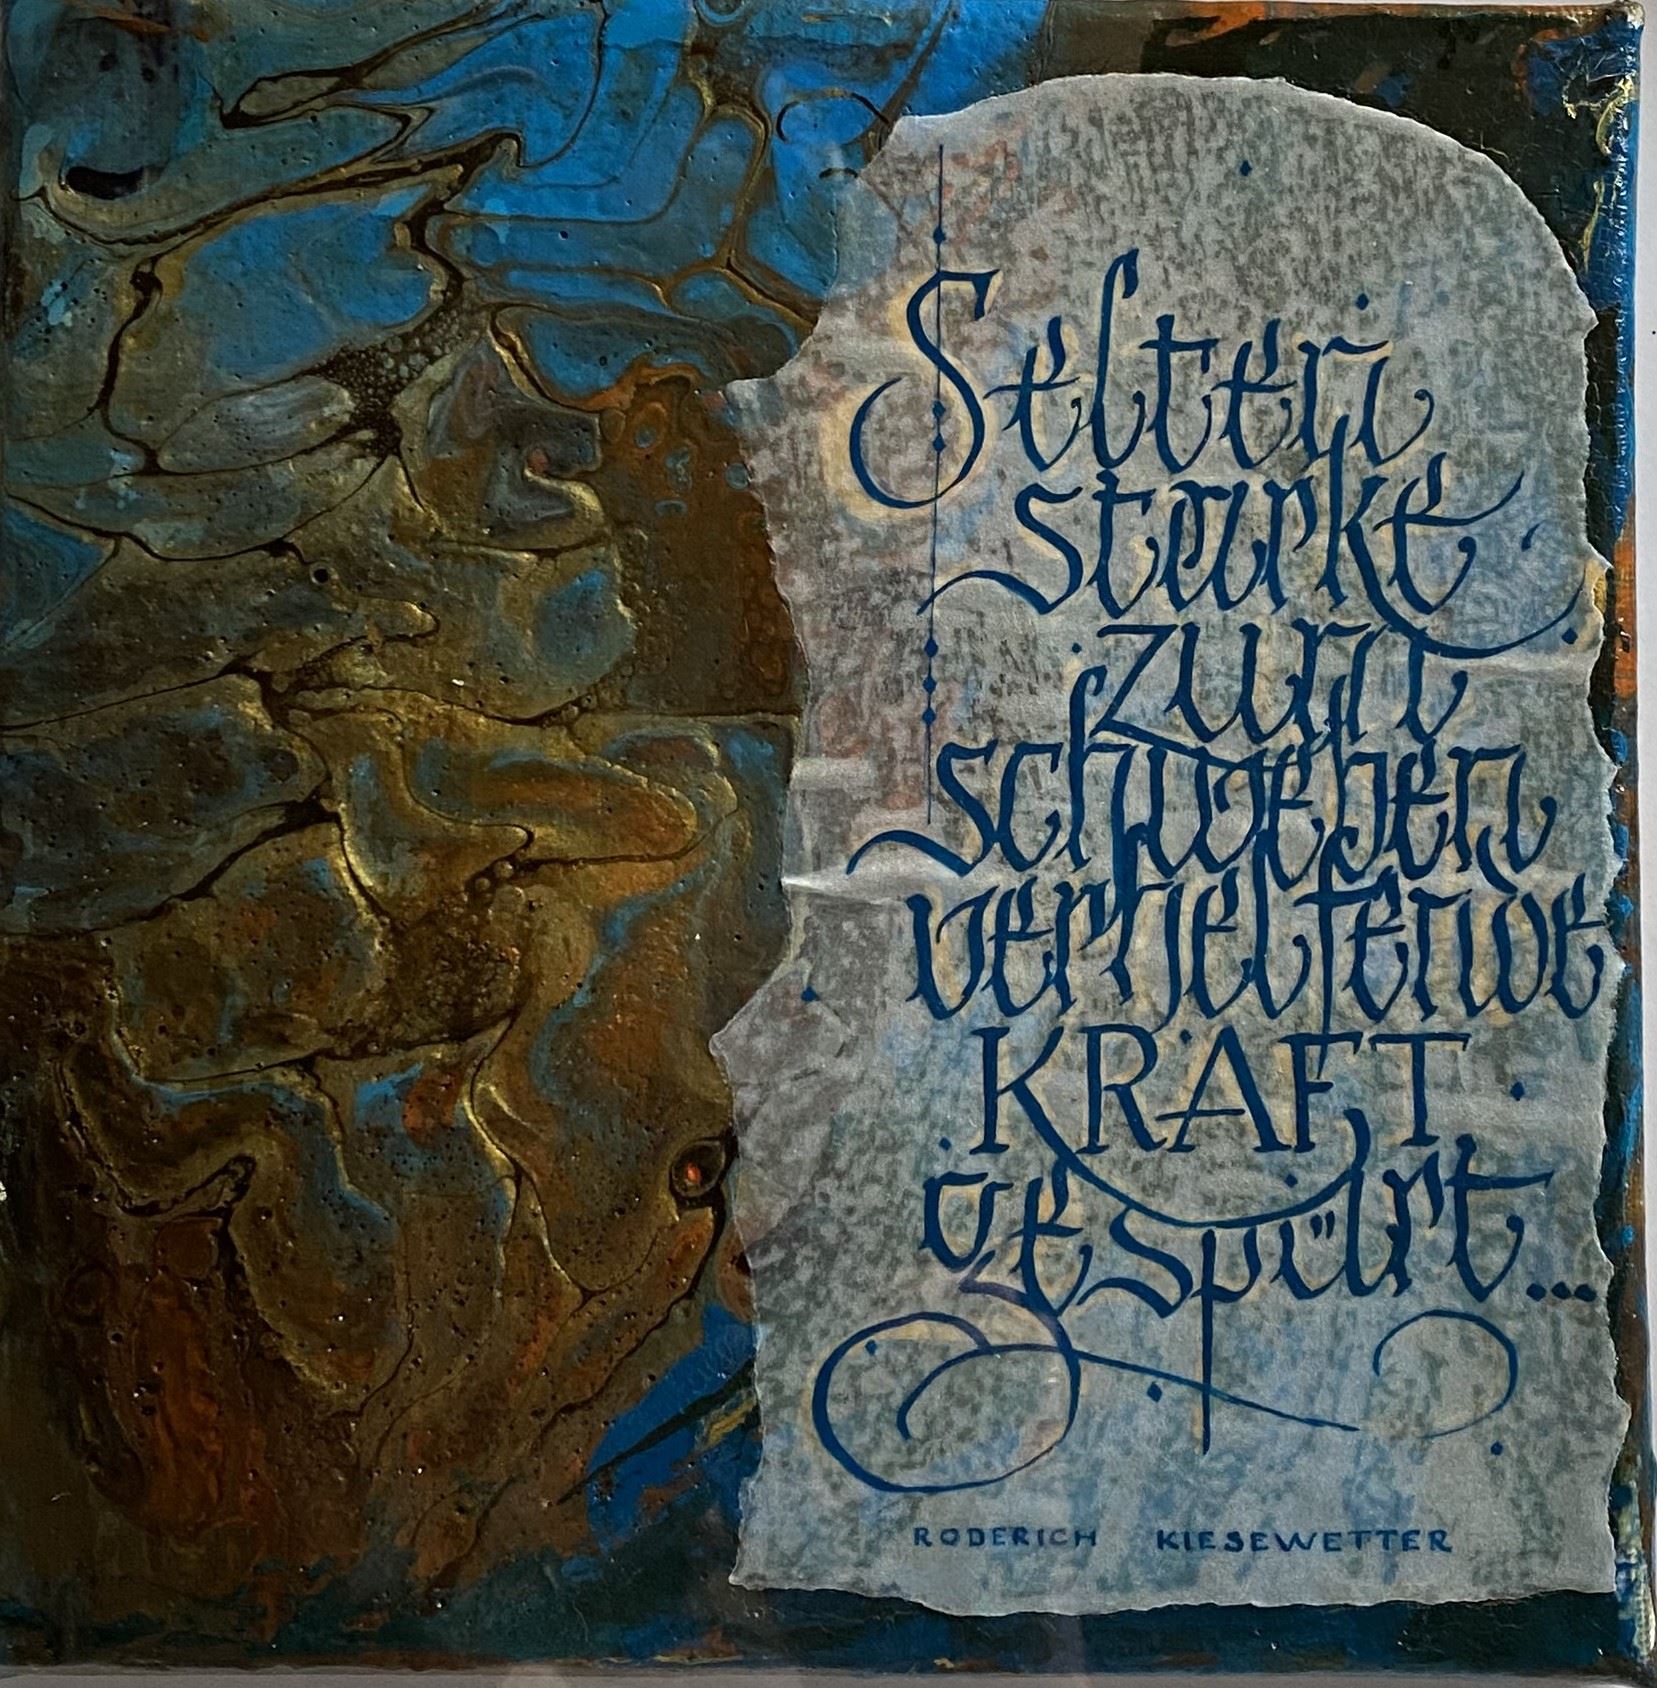 Selten
starke
zum
schweben
verhelfende
KRAFT
gespürt...
RODERICH KIESEWETTER